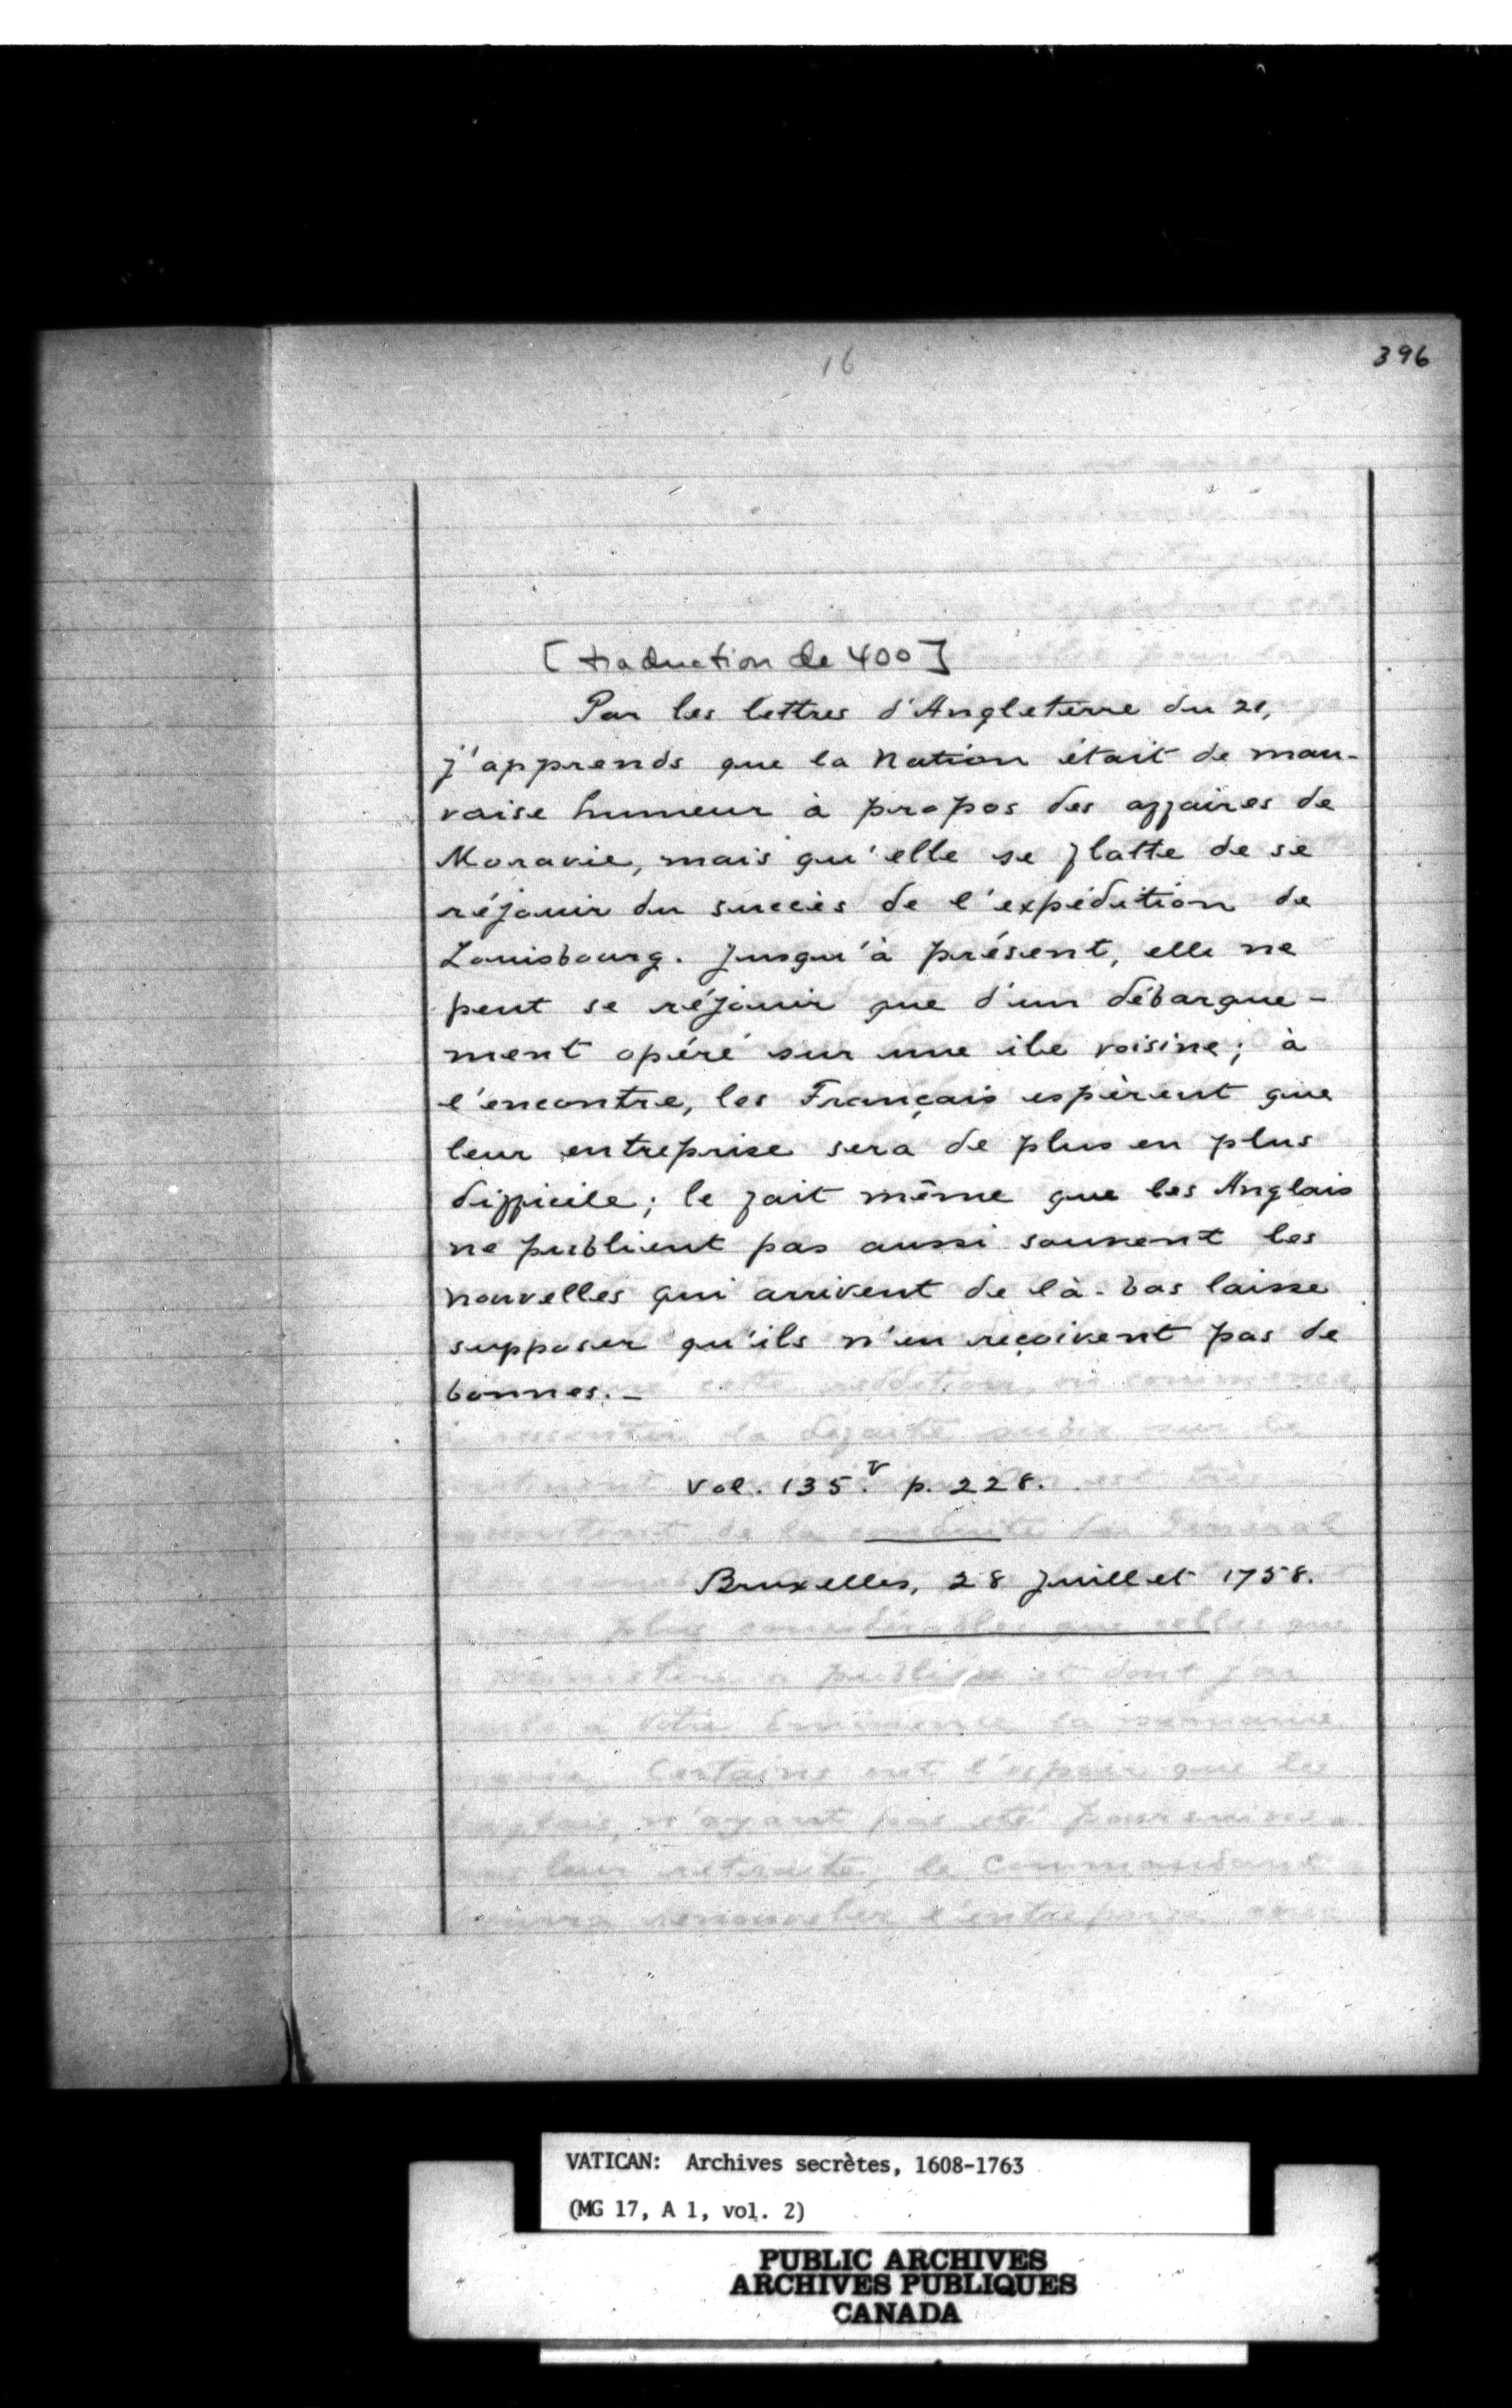 16
396
[traduction de 400]
Par les lettres d'Angleterre du 21,
j'apprends que la Nation était de mau-
vaise humeur à propos des affaires de
Moravie, mais qu'elle se flatte de se
réjouir du succès de l'expédition de
Louisbourg. Jusqu'à présent, elle ne
peut se réjouir que d'un débarque-
ment opéré sur une île voisine; à
l'encontre, les Français espèrent que
leur entreprise sera de plus en plus
difficile; le fait même que les Anglais
ne publient pas aussi souvent les
nouvelles qui arrivent de là-bas laisse
supposer qu'ils n'en reçoivent pas de
bonnes.-
Vol. 135.v p. 228.
Bruxelles, 28 juillet 1758.
VATICAN: Archives secrètes, 1608-1763
(MG 17, A 1, vol. 2)
PUBLIC ARCHIVES
ARCHIVES PUBLIQUES
CANADA